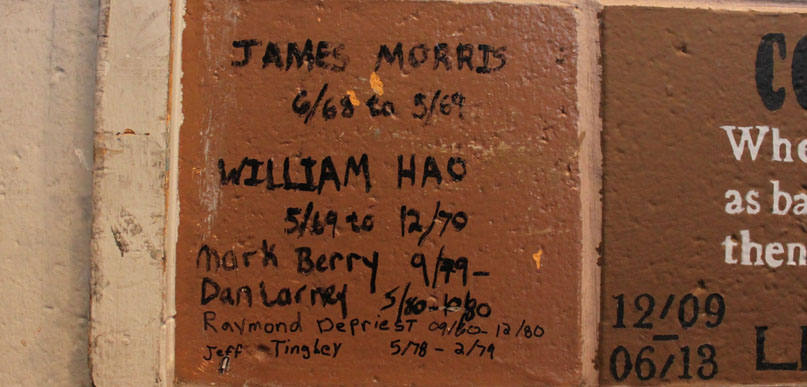 JAMES MORRIS
6/68 to 5/69
WILLIAM HAO
5/69 to 12/70
Mark Berry 9/79-
Dan Larney 5/80-10/80
Raymond DePriest 09/60-12/80
Jeff Tingley 5/78-2/79
CO
Whe
as ba
then
12/09
-
06/13